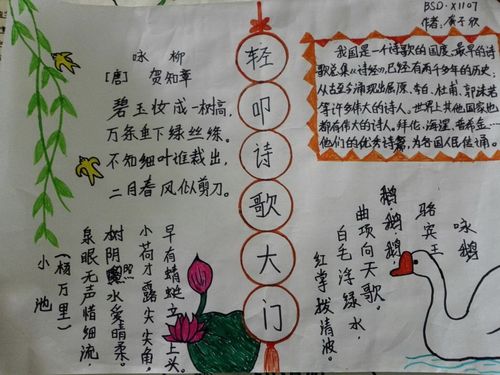 BSD·X1107
作者:子欣
咏 柳
[唐] 贺知章
碧玉妆成一树高,
万条垂下绿丝绦。
不知细叶谁裁出,
二月春风似剪刀。
轻叩诗歌大门
我国是一个诗歌的国度,最早的诗
歌总集《诗经》,已经有两千多年的历史,
从古至今涌现出屈原、李白、杜甫、郭沫若
等许多伟大的诗人。世界上其他国家也
都有伟大的诗人。拜伦、海涅、普希金....
他们的优秀诗篇,为各国人民传诵。
小池
(杨万里)
泉眼无声惜细流,
树阴照水爱晴柔。
小荷才露尖尖角,
早有蜻蜓立上头。
咏鹅
骆宾王
鹅·鹅·鹅
曲项向天歌。
白毛浮绿水,
红掌拨清波。